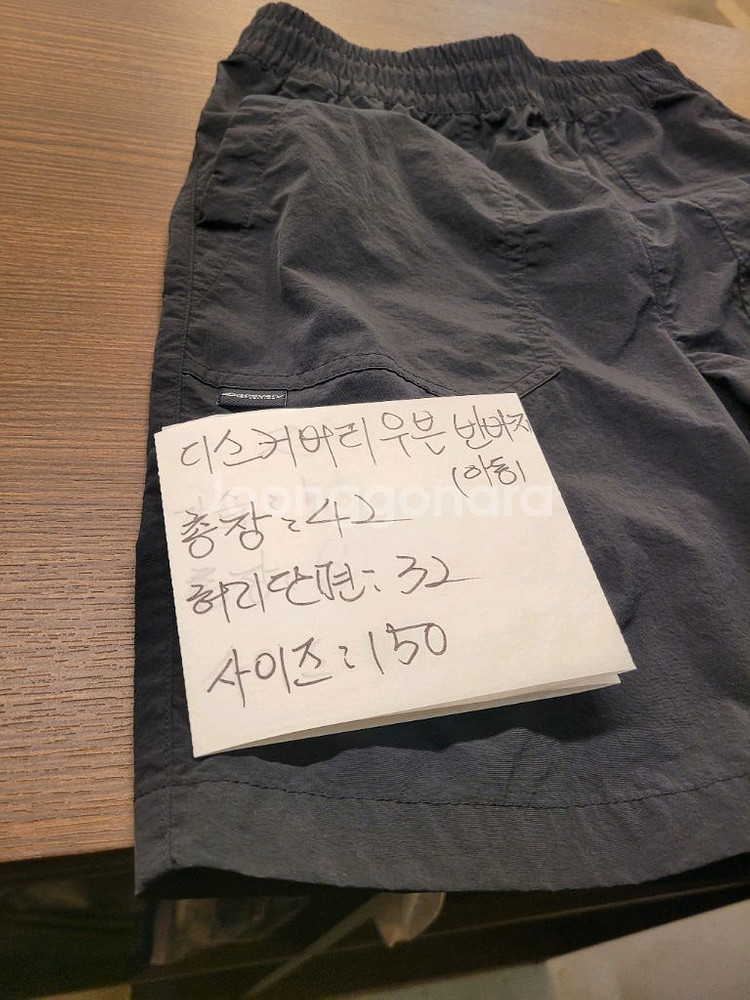 DISCOVERY
디스커버리 우븐 반바지
(아동)
Joonggonara
총장 : 42
허리단면 : 32
사이즈 : 150